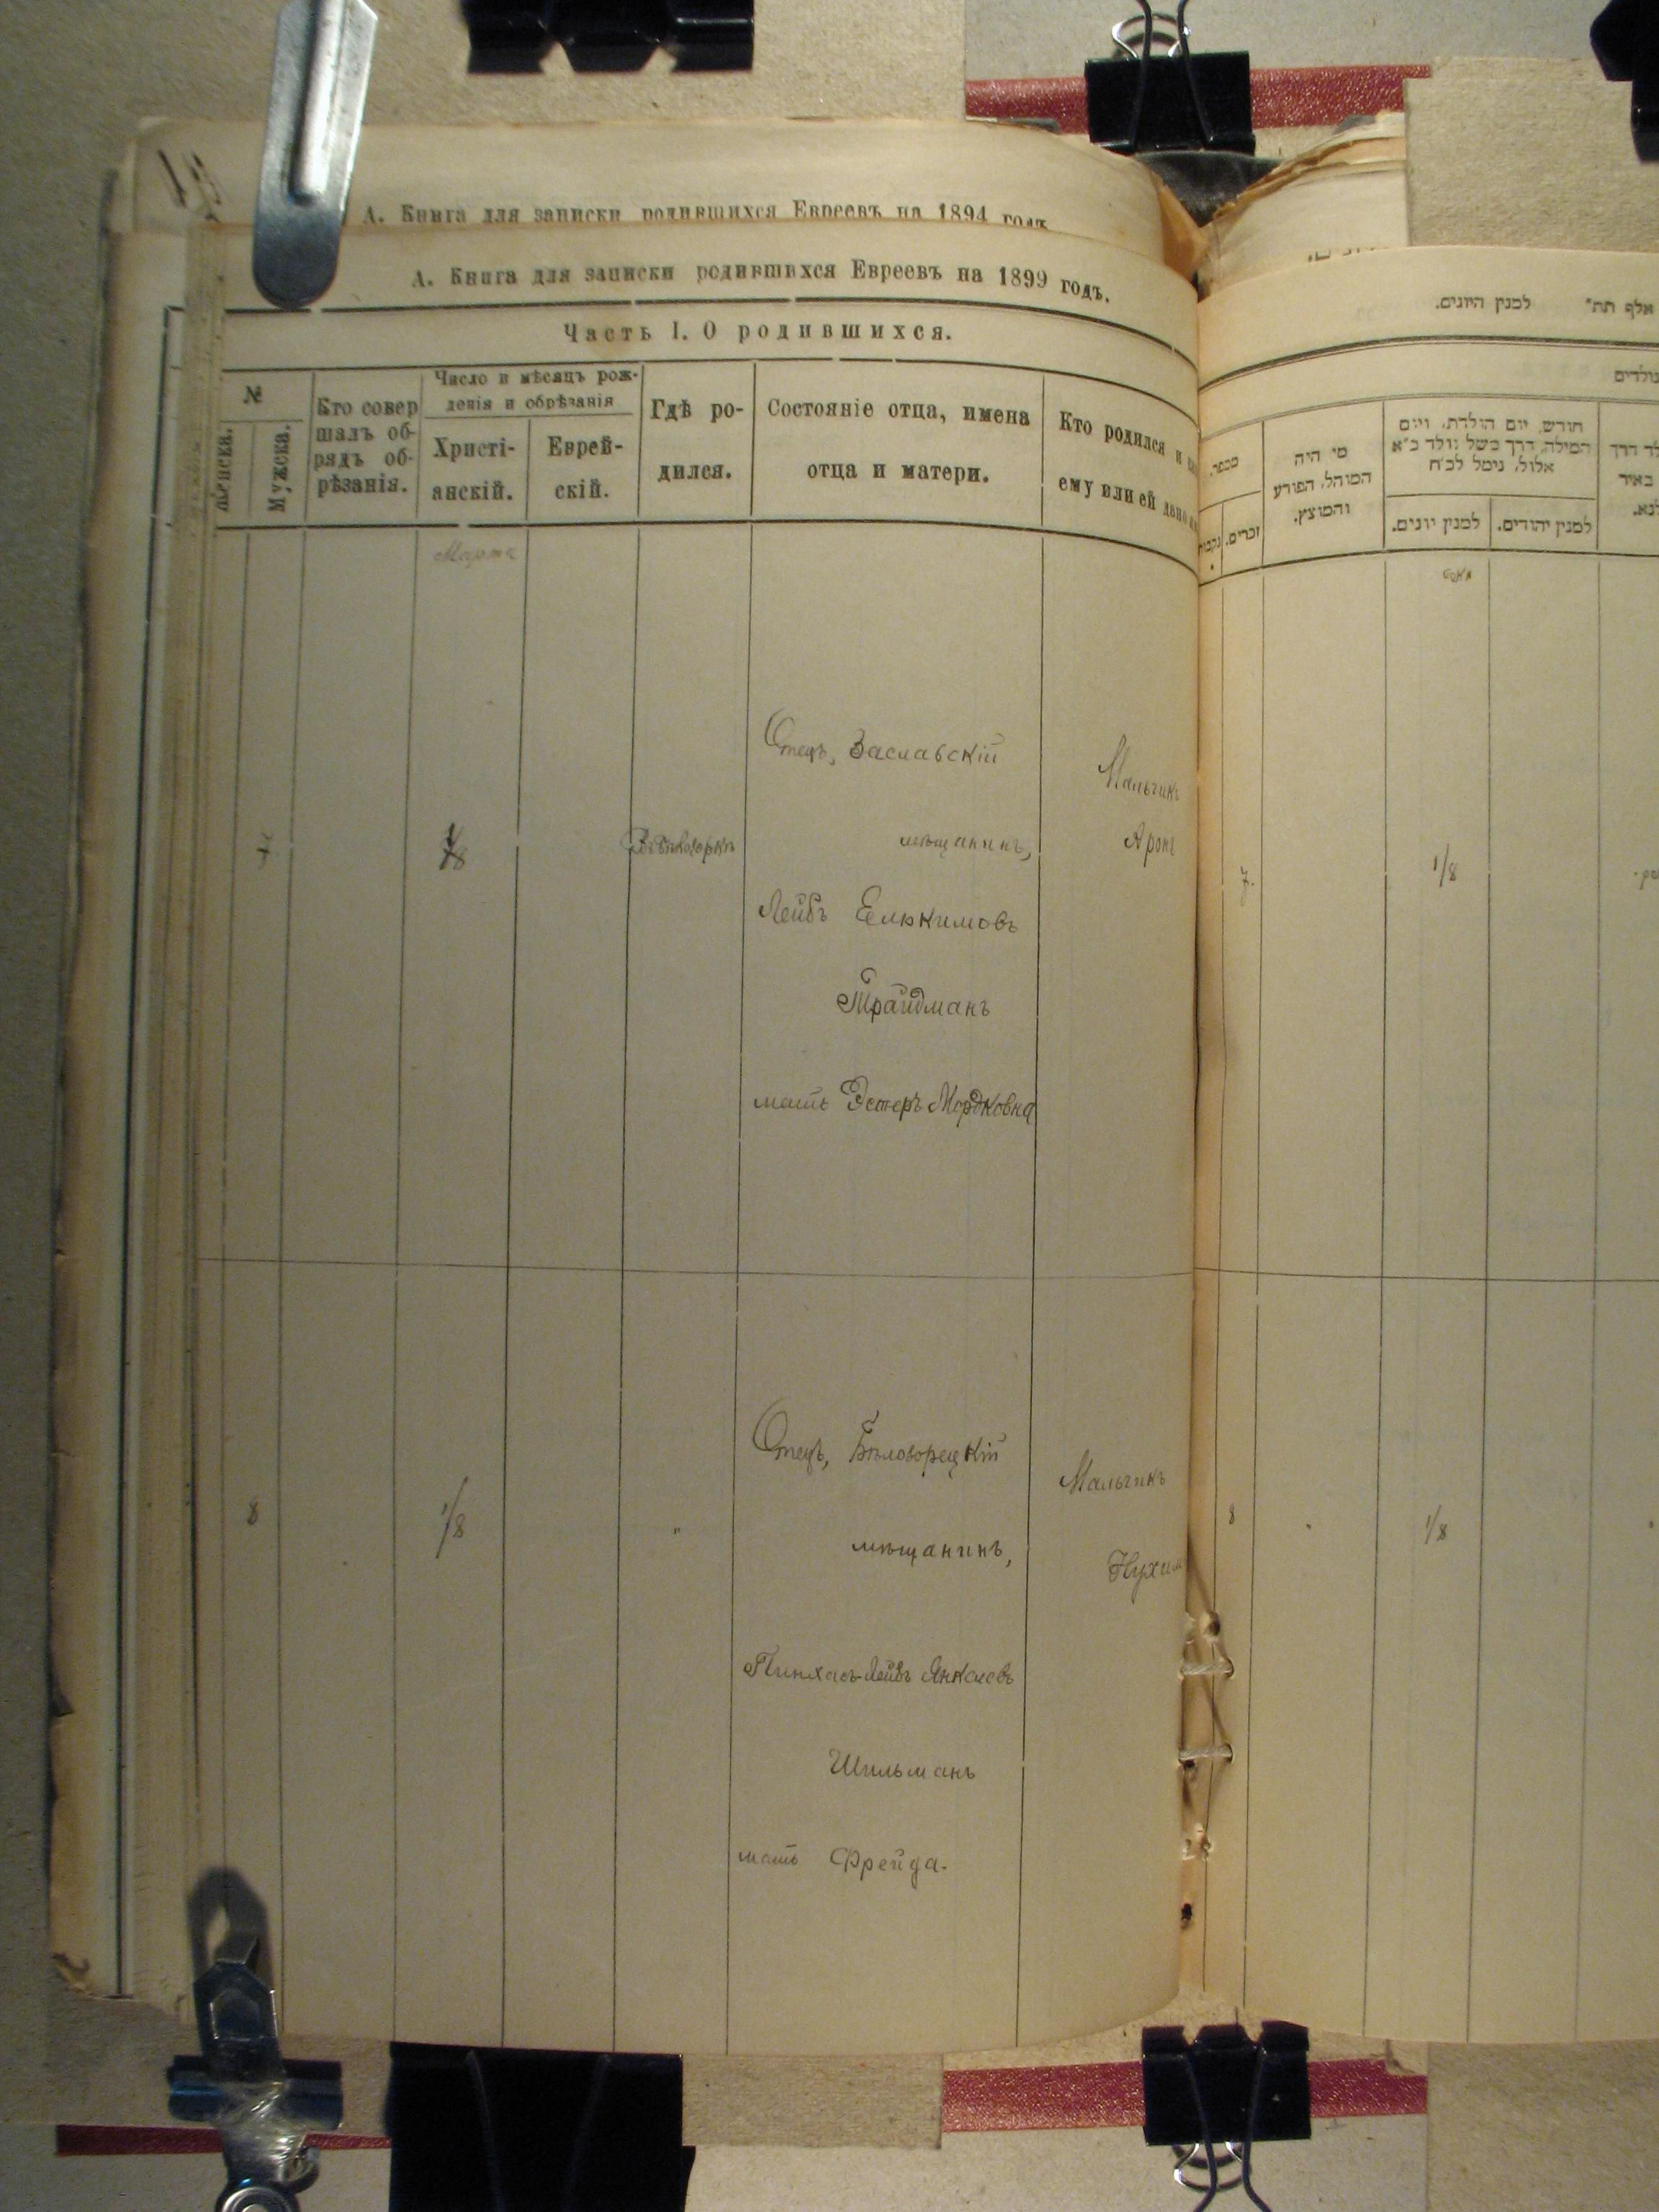 А. Книга для записки родившихся Евреевъ на 1894 годъ
А. Книга для записки родившихся Евреевъ на 1899 годъ.
Часть I. О родившихся.
№
Мужска.
Кто совер
шалъ об-
рядъ об-
рѣзанія.
Число и мѣсяцъ рож-
денія и обрѣзанія
Христі-
анскій.
Еврей-
скій.
Гдѣ ро-
дился.
Состояніе отца, имена
отца и матери.
Кто родился и
ему или ей дано
Марта
7
1/8
Отецъ, Заславскій
мѣщанинъ,
Лейбъ Елюкимовъ
Трайдманъ
мать Эстеръ Мордковна
Мальчикъ
Аронъ
8
1/8
"
Отецъ, Бѣлогорецкій
мѣщанинъ,
Пинхасъ-Лейбъ Янкелевъ
Шильманъ
мать Фрейда.
Мальчикъ
Нухим
אלף תת״ למנין היונים.
נולדים
מספר.
זכרים.
מי היה
המוהל, הפורע
והמוצץ.
חודש, יום הולדת, ויום
המילה, דרך משל נולד כ״א
אלול, נימל לכ״ח
למנין יונים.
למנין יהודים.
7.
1/8
8
1/8